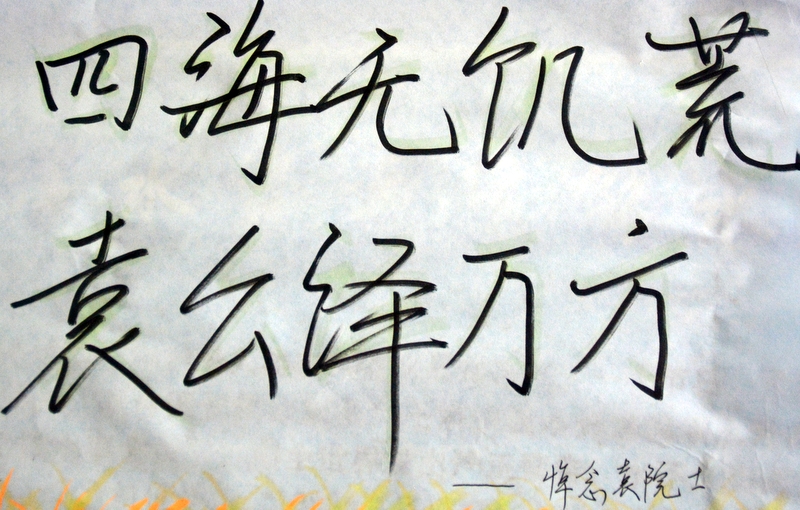 四海无饥荒
袁公泽万方
—— 悼念袁院士